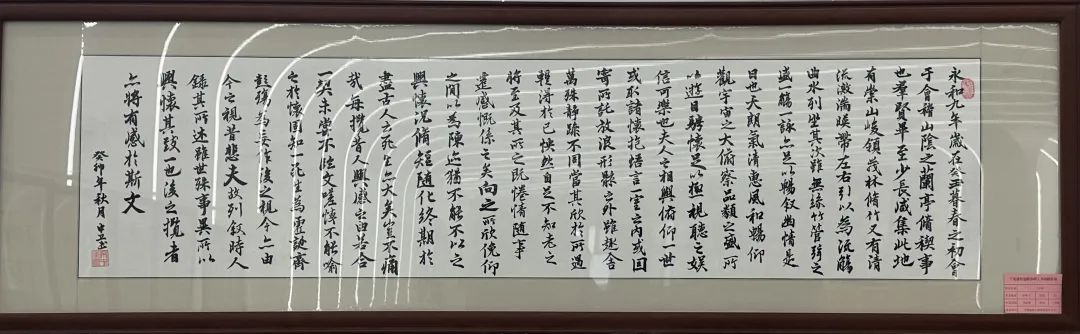 永和九年歲在癸丑暮春之初會
于會稽山陰之蘭亭脩禊事
也羣賢畢至少長咸集此地
有崇山峻領茂林脩竹又有清
流激湍暎帶左右引以為流觴
曲水列坐其次雖無絲竹管弦之
盛一觴一詠亦足以暢叙幽情是
日也天朗氣清惠風和暢仰
觀宇宙之大俯察品類之盛所
以遊目騁懷足以極視聽之娛
信可樂也夫人之相與俯仰一世
或取諸懷抱悟言一室之內或因
寄所託放浪形骸之外雖趣舍
萬殊靜躁不同當其欣於所遇
輕得於己怏然自足不知老之
將至及其所之既惓情隨事
遷感慨係之矣向之所欣俛仰
之間以為陳迹猶不能不以之
興懷況脩短隨化終期於
盡古人云死生亦大矣豈不痛
哉每攬昔人興感之由若合
一契未嘗不臨文嗟悼不能喻
之於懷固知一死生為虛誕齊
彭殤為妄作後之視今亦由
今之視昔悲夫故列叙時人
錄其所述雖世殊事異所以
興懷其致一也後之攬者
亦將有感於斯文
癸卯年秋月